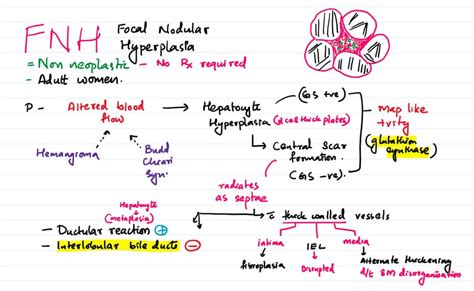 FNH Focal Nodular
Hyperplasia
= Non neoplastic - No Rx required
- Adult women.
P - Altered blood flow → Hepatocyte Hyperplasia (2 cell thick plates)
(GS +ve)
Map like +vity
(glutathion synthase)
Hemangioma
Budd Chiari Syn.
Central Scar formation.
(GS -ve)
radiates as septae
Hepatocyte (metaplasia)
- Ductular reaction +
- Interlobular bile ducts -
c̄ thick walled vessels
intima IEL media
fibroplasia Disrupted Alternate thickening
d/t SM disorganisation